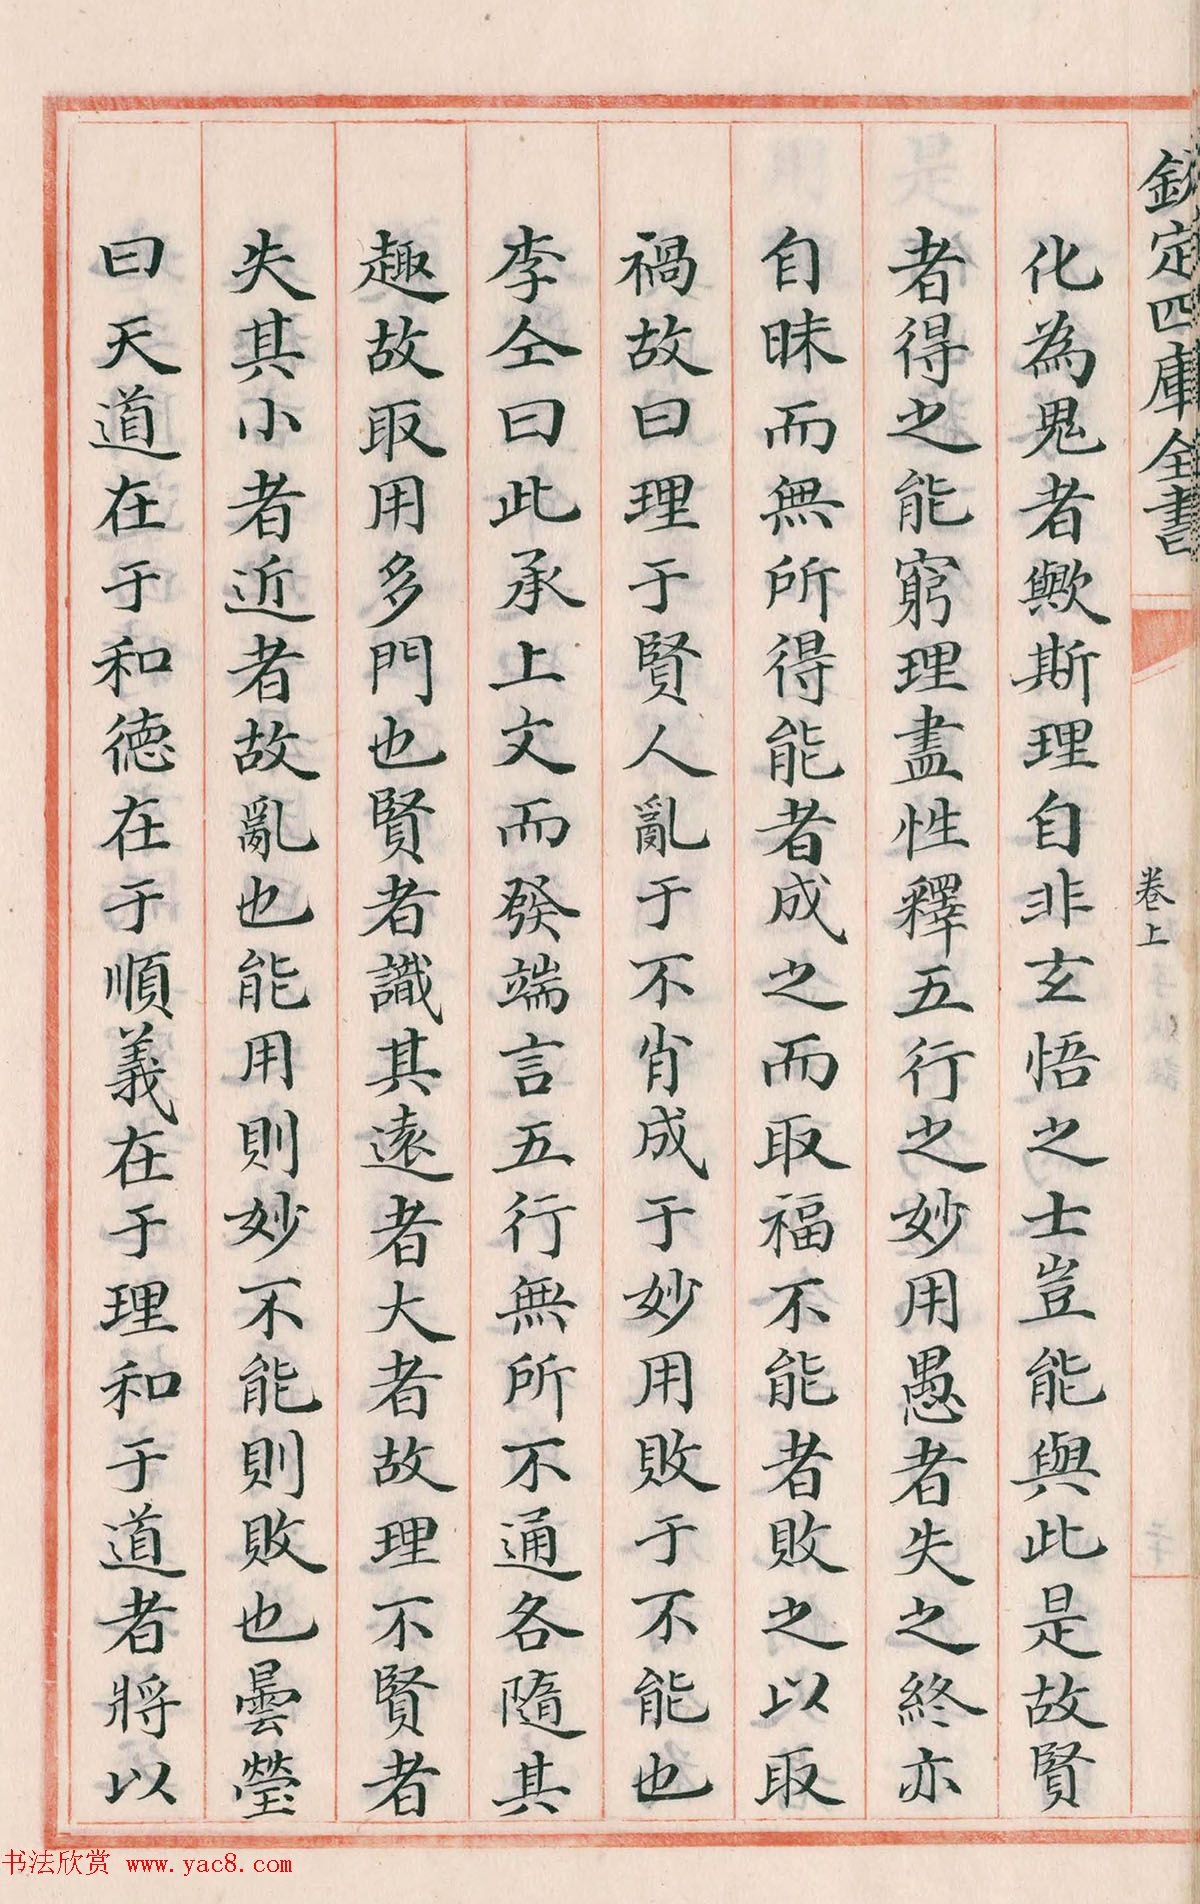 欽定四庫全書
卷上
化為鬼者歟斯理自非玄悟之士豈能與此是故賢
者得之能窮理盡性釋五行之妙用愚者失之終亦
自昧而無所得能者成之而取福不能者敗之以取
禍故曰理于賢人亂于不肖成于妙用敗于不能也
李仝曰此承上文而發端言五行無所不通各隨其
趣故取用多門也賢者識其遠者大者故理不賢者
失其小者近者故亂也能用則妙不能則敗也曇瑩
曰天道在于和德在于順義在于理和于道者將以
书法欣赏 www.yac8.com